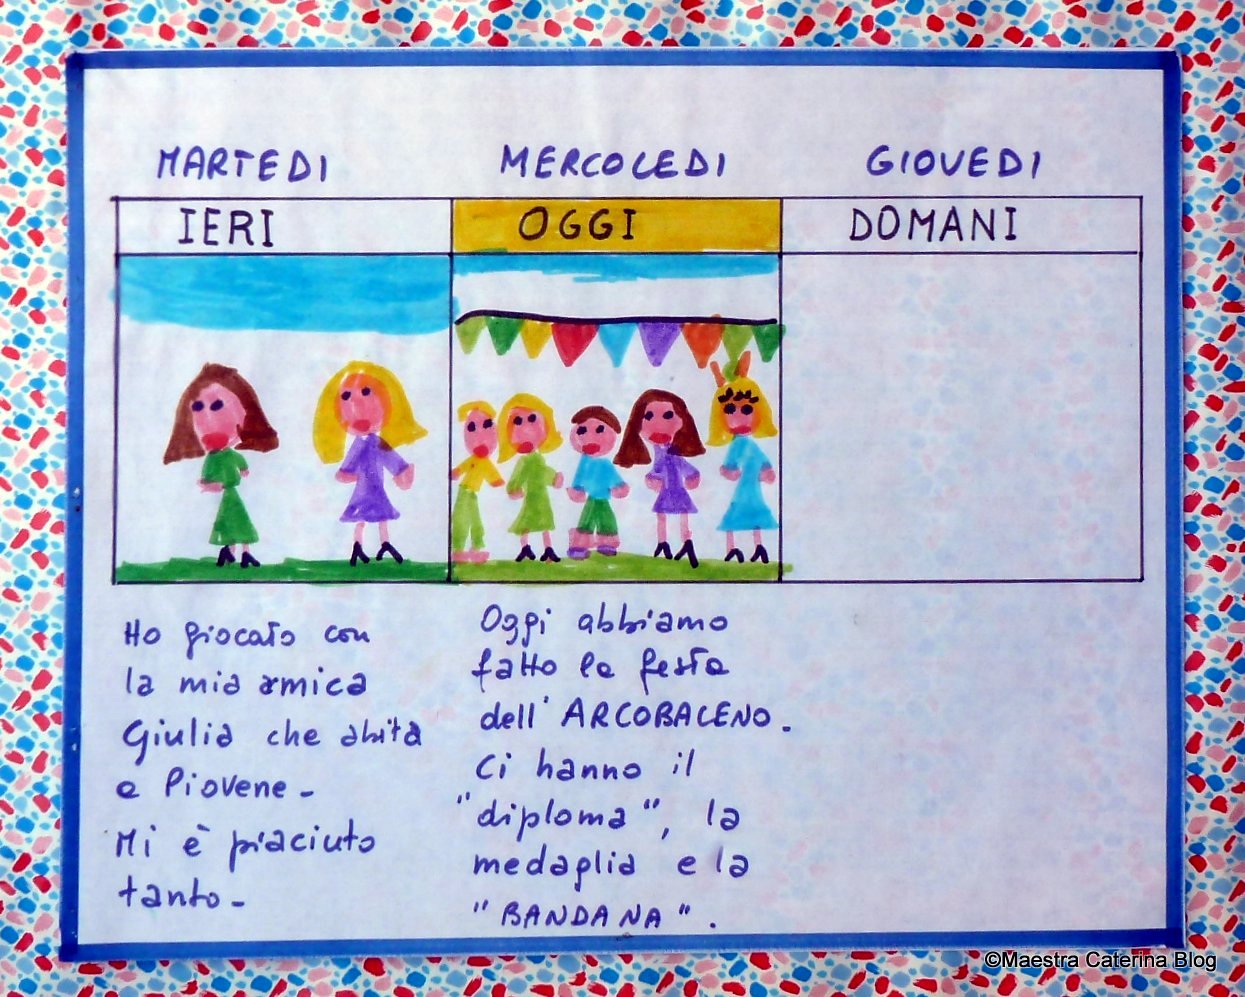 MARTEDI MERCOLEDI GIOVEDI
IERI OGGI DOMANI
Ho giocato con
la mia amica
Giulia che abita
a Piovene -
Mi è piaciuto
tanto -
Oggi abbiamo
fatto la festa
dell' ARCOBALENO.
Ci hanno il
"diploma", la
medaglia e la
"BANDANA".
©Maestra Caterina Blog